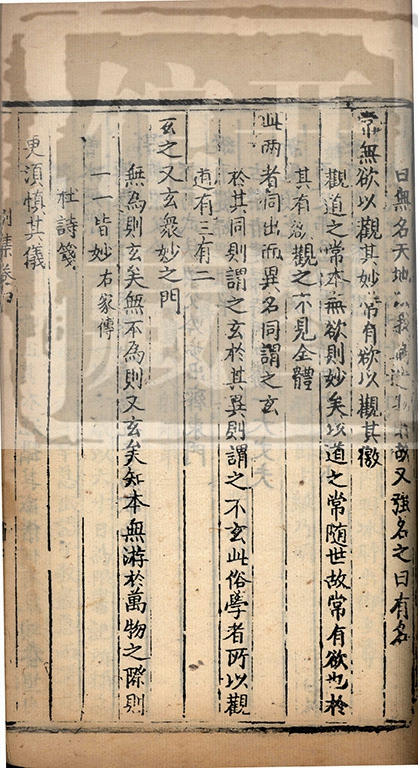 曰無名天地以我而造物故又強名之曰有名
常無欲以觀其妙常有欲以觀其徼
觀道之常本無欲則妙矣以道之常随世故常有欲也於
其有欲觀之不見全體
此两者同出而異名同謂之玄
於其同則謂之玄於其異則謂之不玄此俗學者所以觀
道有三有二
玄之又玄衆妙之門
無為則玄矣無不為則又玄矣知本無游於萬物之際則
一一皆妙右家傳
杜詩箋
更須慎其儀
別集卷四